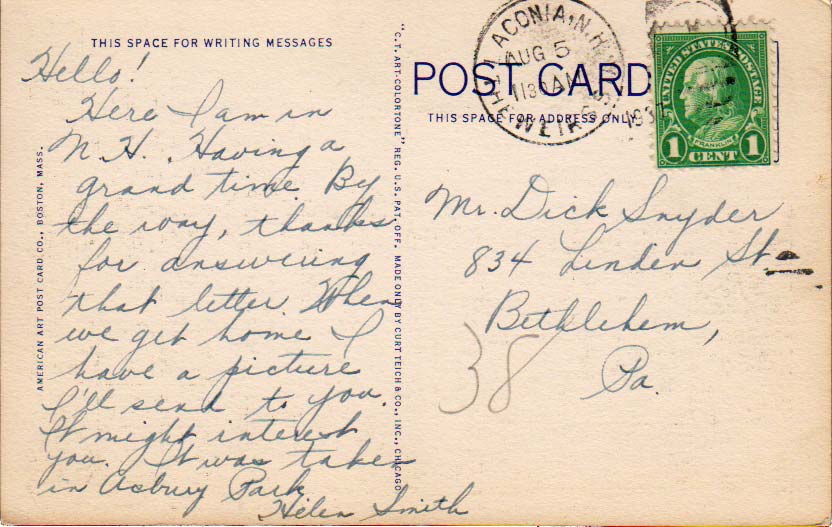 THIS SPACE FOR WRITING MESSAGES
Hello!
Here I am in
N.H. Having a
grand time. By
the way, thanks
for answering
that letter. When
we get home I
have a picture
I'll send to you.
It might interest
you. It was taken
in Asbury Park
Helen Smith
AMERICAN ART POST CARD CO., BOSTON, MASS.
"C.T. ART-COLORTONE" REG. U.S. PAT. OFF. MADE ONLY BY CURT TEICH & CO., INC., CHICAGO
POST CARD
THIS SPACE FOR ADDRESS ONLY
LACONIA, N.H.
AUG 5
1130 AM
THE WEIRS
193
UNITED STATES POSTAGE
FRANKLIN
1 CENT 1
Mr. Dick Snyder
834 Linden St
Bethlehem,
Pa.
38